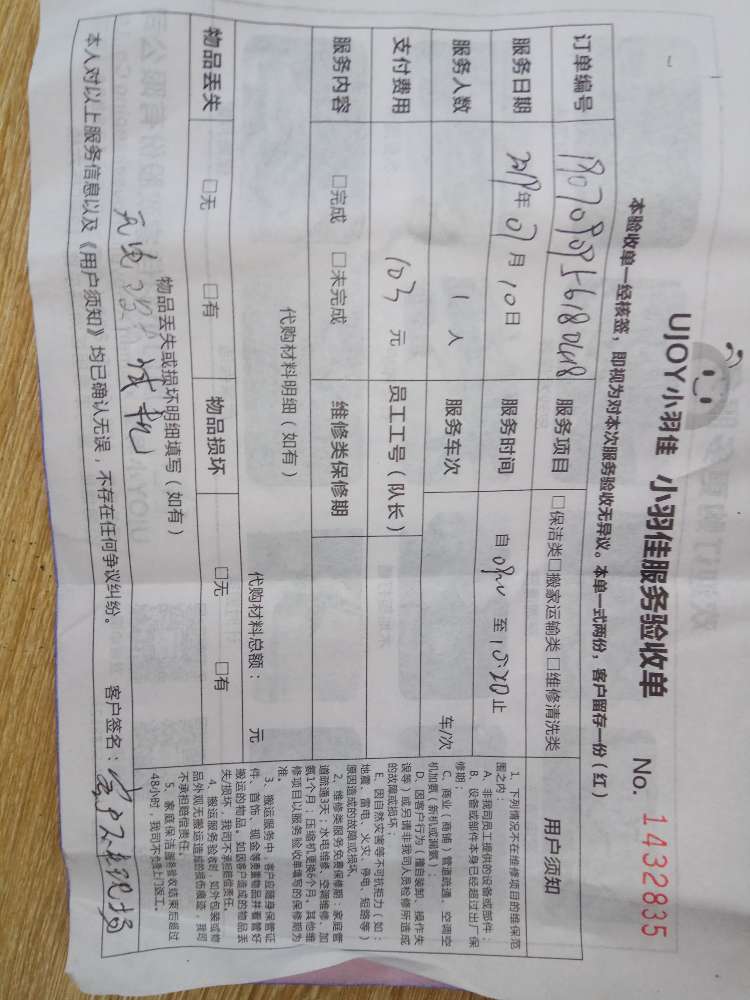 UJOY小羽佳 小羽佳服务验收单 No. 1432835
本验收单一经核签，即视为对本次服务验收无异议。本单一式两份，客户留存一份（红）
订单编号 服务项目 □保洁类□搬家运输类 □维修清洗类
服务日期 2019年07月10日 服务时间 自 至10:20止
服务人数 1人 服务车次 车/次
支付费用 103元 员工工号（队长）
服务内容 □完成 □未完成 维修类保修期
代购材料明细（如有） 代购材料总额： 元
物品丢失 □无 □有 物品损坏 □无 □有
物品丢失或损坏明细填写（如有）
本人对以上服务信息以及《用户须知》均已确认无误，不存在任何争议纠纷。 客户签名：客户不在现场
用户须知
1、下列情况不在维修项目的维保范
围之内：
A、非我司员工提供的设备或部件；
B、设备或部件本身已经超过出厂保
修期；
C、商业（商铺）管道疏通，空调空
机加氨（新机或漏氨）；
D、因客户行为（擅自装卸、操作失
误等）或另请非我司人员检修所造成
的故障或损坏；
E、因自然灾害等不可抗拒力（如：
地震、雷电、火灾、停电、短路等）
原因造成的故障或损坏。
2、维修类服务免费保修期：家庭管
道疏通3天；水电维修、空调维修、加
氨1个月；压缩机更换6个月。其他维
修项目以服务验收单填写的保修期为
准。
3、搬运服务中，客户应随身保管证
件、首饰、现金等贵重物品并看管好
搬运的物品。如因客户造成的物品丢
失/损坏，我司不承担赔偿责任。
4、搬运服务验收时，如外包装或物
品外观无搬运造成的损伤痕迹，我司
不承担赔偿责任。
5、家庭保洁服务验收结束后超过
48小时，我司不负责上门返工。